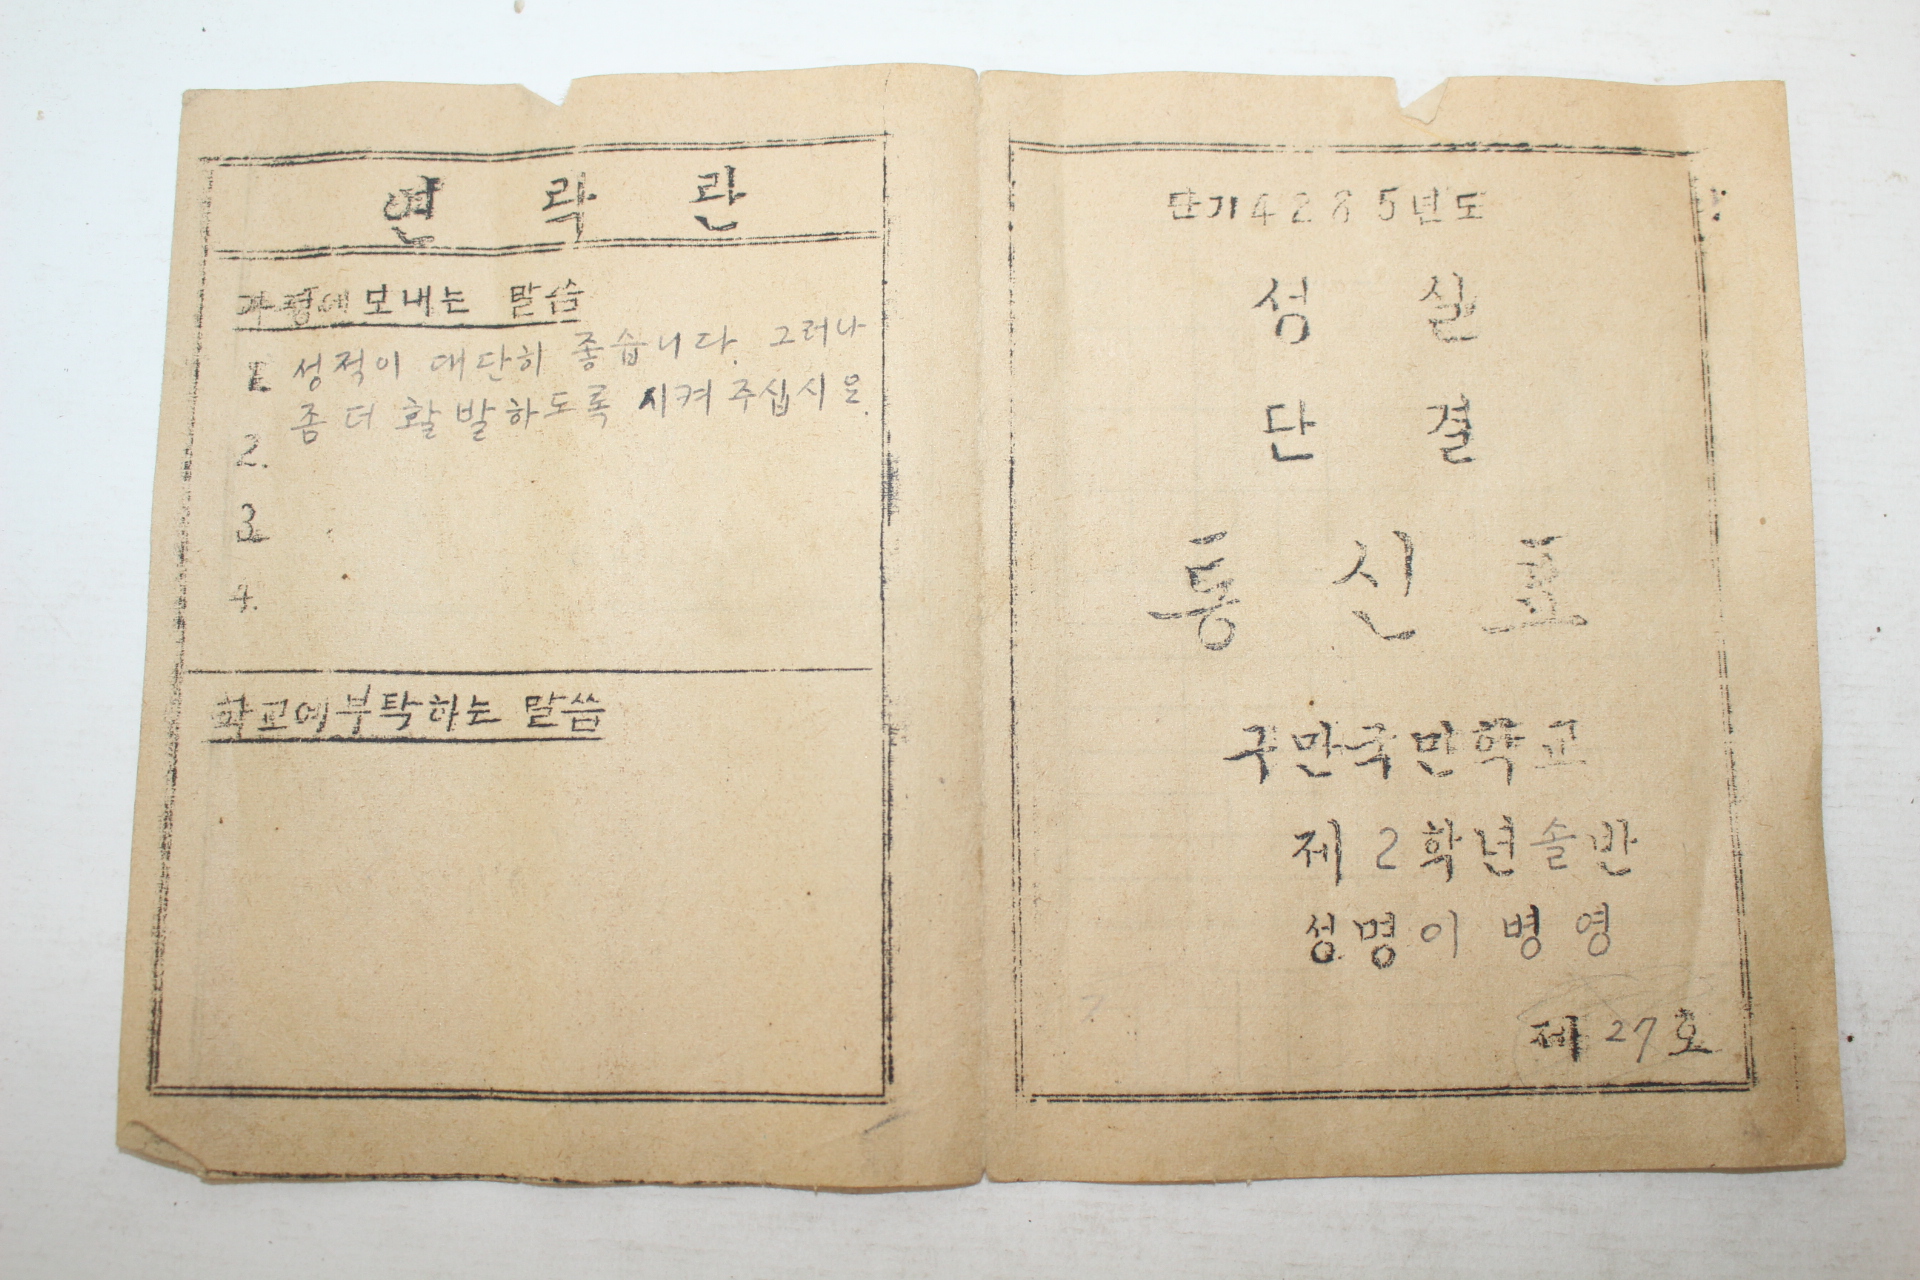 연락란
가정에 보내는 말씀
1. 성적이 대단히 좋습니다. 그러나
좀 더 활발하도록 시켜 주십시오.
2.
3.
4.
학교에 부탁하는 말씀
단기 4285년도
성실
단결
통신표
구만국민학교
제 2 학년 솔반
성명 이병영
제 27 호